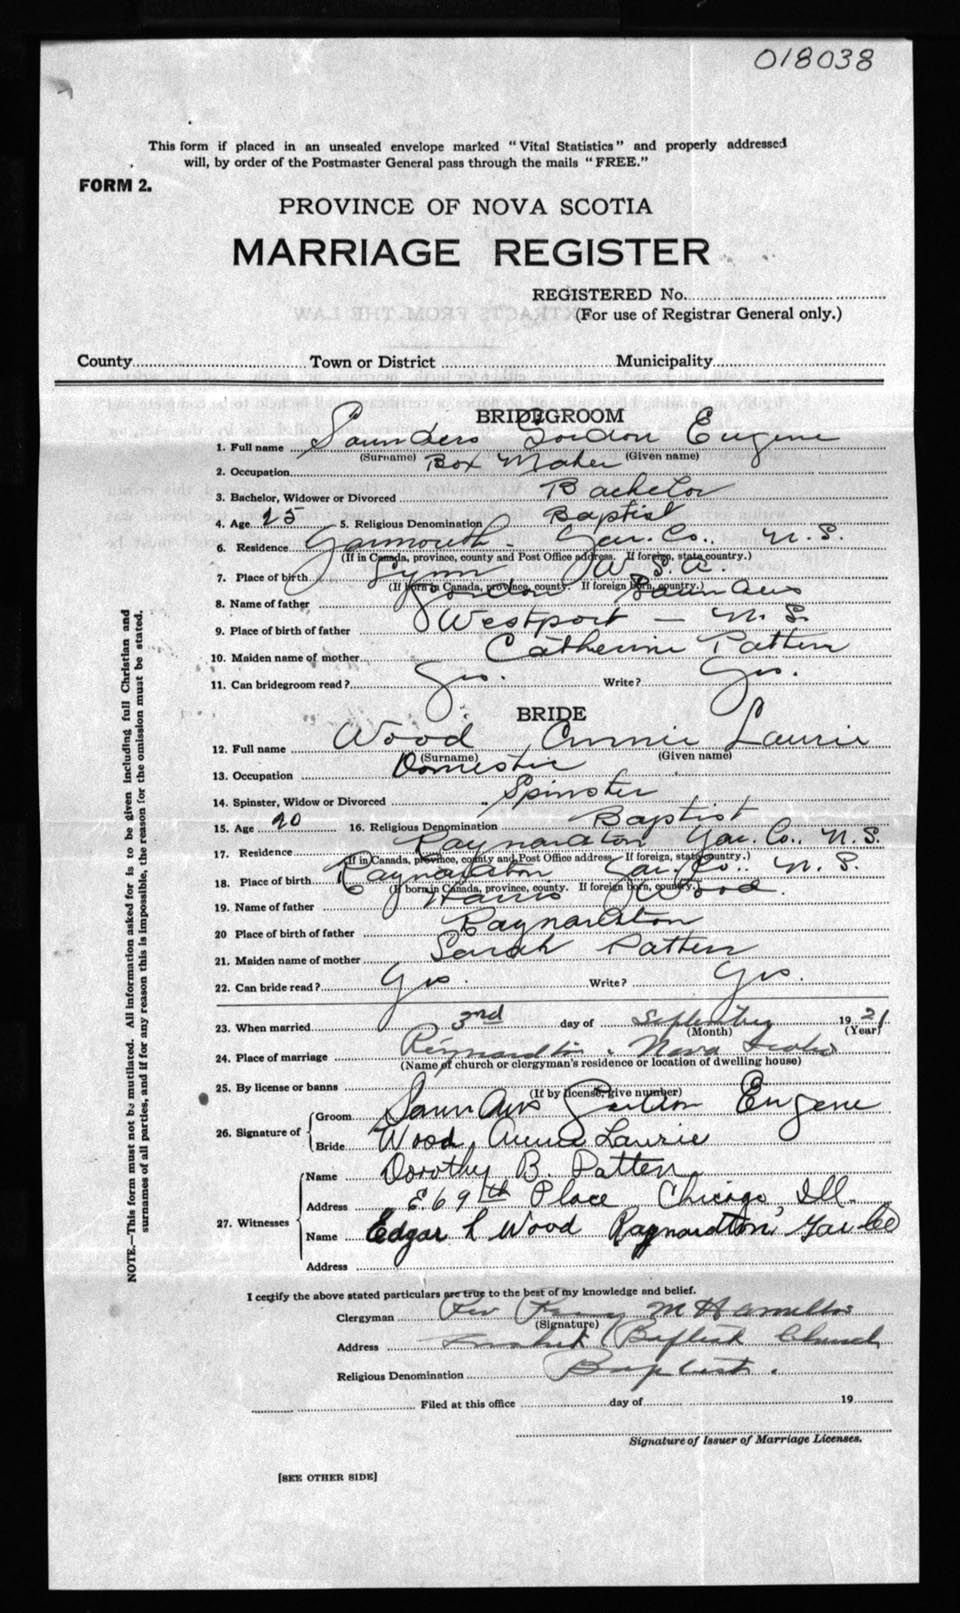 018038
This form if placed in an unsealed envelope marked "Vital Statistics" and properly addressed
will, by order of the Postmaster General pass through the mails "FREE."
FORM 2.
PROVINCE OF NOVA SCOTIA
MARRIAGE REGISTER
REGISTERED No.
(For use of Registrar General only.)
County Town or District Municipality
BRIDEGROOM
1. Full name Saunders Gordon Eugene
(Surname) (Given name)
2. Occupation Box Maker
3. Bachelor, Widower or Divorced Bachelor
4. Age 25 5. Religious Denomination Baptist
6. Residence Yarmouth - Yar. Co., N.S.
(If in Canada, province, county and Post Office address. If foreign, state country.)
7. Place of birth Lynn U.S.A.
(If born in Canada, province, county. If foreign born, country.)
8. Name of father Gordon Saunders
9. Place of birth of father Westport - N.S.
10. Maiden name of mother Catherine Patten
11. Can bridegroom read? Yes. Write? Yes.
BRIDE
12. Full name Wood Annie Laurie
(Surname) (Given name)
13. Occupation Domestic
14. Spinster, Widow or Divorced Spinster
15. Age 20 16. Religious Denomination Baptist
17. Residence Raynardton Yar. Co., N.S.
(If in Canada, province, county and Post Office address. If foreign, state country.)
18. Place of birth Raynardton Yar. Co., N.S.
(If born in Canada, province, county. If foreign born, country.)
19. Name of father Harris Wood.
20 Place of birth of father Raynardton
21. Maiden name of mother Sarah Patten
22. Can bride read? Yes. Write? Yes.
23. When married 3rd day of September 1921
(Month) (Year)
24. Place of marriage Reynardton. Nova Scotia
(Name of church or clergyman's residence or location of dwelling house)
25. By license or banns
(If by license, give number)
26. Signature of Groom Saunders Gordon Eugene
Bride Wood, Annie Laurie
27. Witnesses Name Dorothy B. Patten
Address E. 69th Place Chicago, Ill.
Name Edgar L Wood Raynardton, Yar Co
Address
I certify the above stated particulars are true to the best of my knowledge and belief.
Clergyman Rev M Hamilton
(Signature)
Address Baptist Church
Religious Denomination Baptist.
Filed at this office day of 19
Signature of Issuer of Marriage Licenses.
[SEE OTHER SIDE]
NOTE.—This form must not be mutilated. All information asked for is to be given including full Christian and
surnames of all parties, and if for any reason this is impossible, the reason for the omission must be stated.